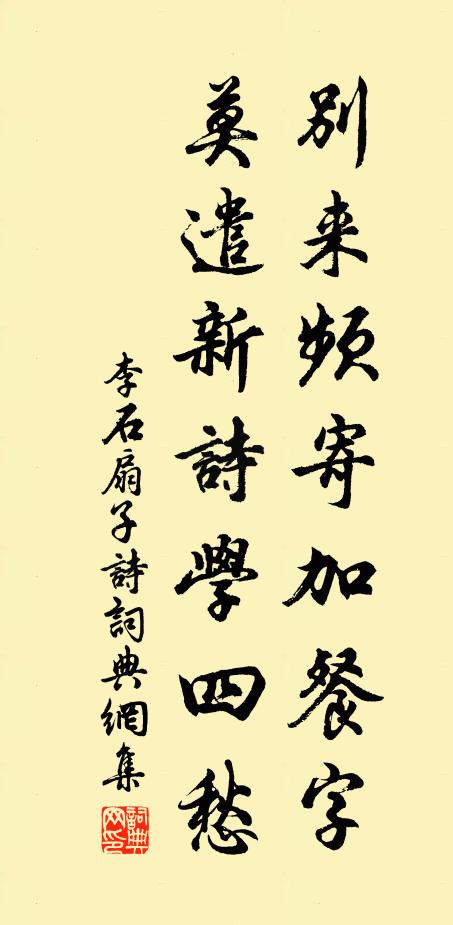 別来頻寄加餐字
莫遣新詩學四愁
李石扇子詩詞典網集
詞典网印